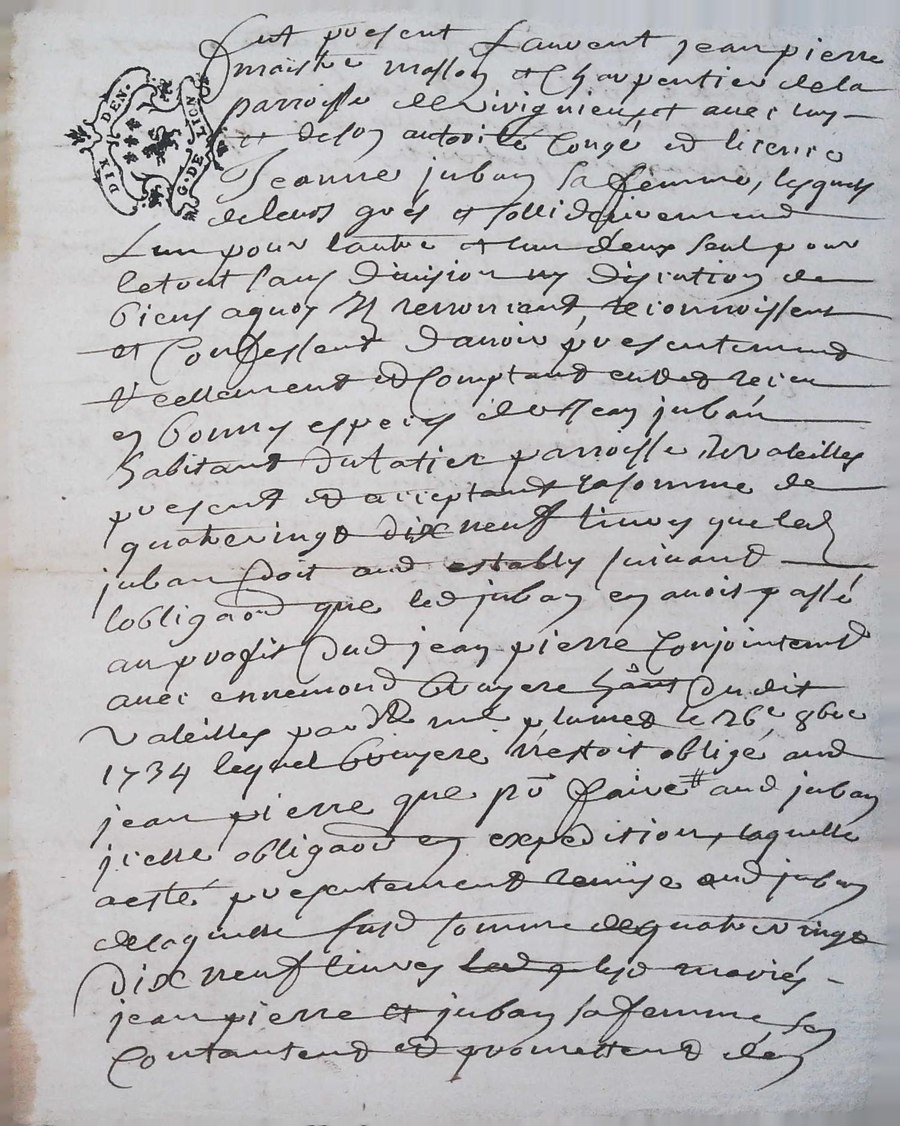 DIX DEN. G. DE LION
Fut present Laurent jean pierre
maistre masson et Charpentier de la
parroisse de
et de son autorité Congé et licence
Jeanne juban sa femme, lesquels
de leurs grés et sollidairement
Lun pour lautre et lun deux seul pour
le tout sans division ny discution de
biens a quoy ils renoncent, reconnoissent
et Confessent d'avoir presentement
reellement et Comptant eu et receu
en bonnes especes de juban
habitant du latier parroisse de valeilles
present et acceptant la somme de
quatrevingt dix neuf livres que led
juban doit aud estably suivant
lobligaon que led juban en avoit passé
au profit dud jean pierre Conjointemt
avec ennemond bruyere hant dudit
Valeilles par dvt me plumet le 26e 8bre
1734 lequel bruyere n'estoit obligé aud
jean pierre que pr faire # aud juban
jcelle obligaon en expedition, laquelle
a esté presentement remise aud juban
de laquelle susd somme de quatrevingt
dix neuf livres lesd mariés
jean pierre et juban sa femme se
Contantent et promettent den